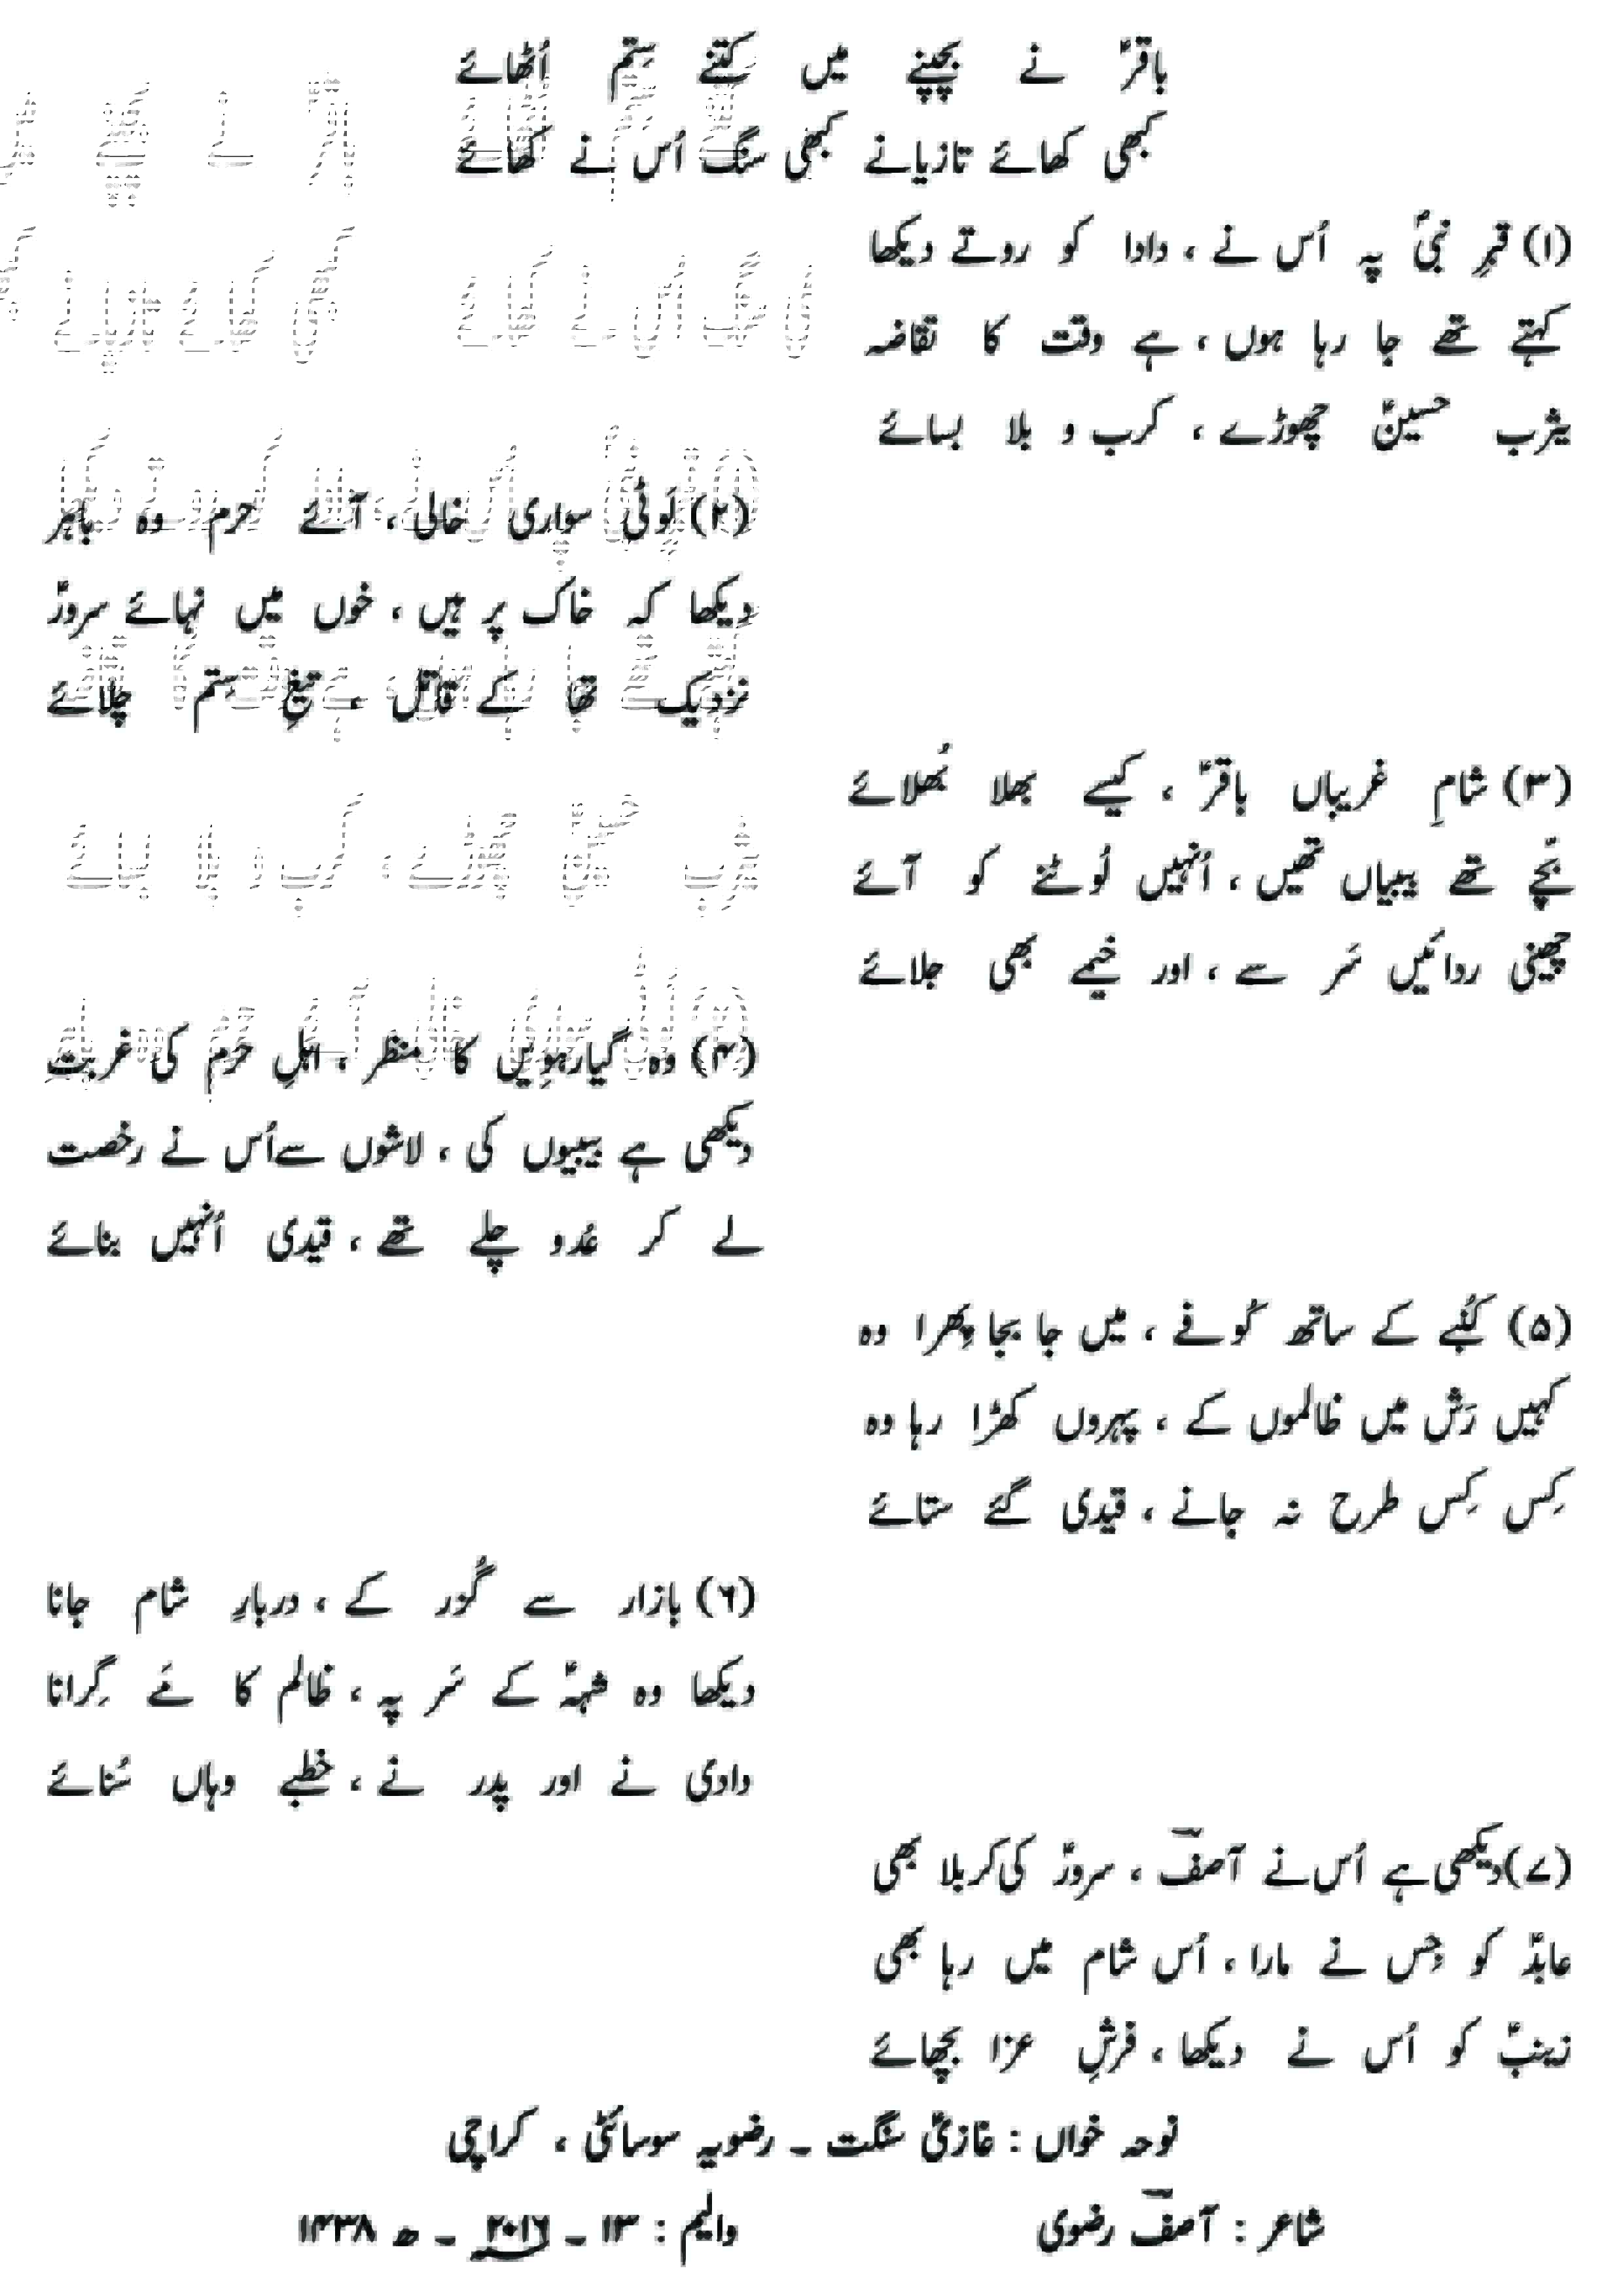 باقرؑ نے بچپنے میں کتنے سِتم اُٹھائے
کبھی کھائے تازیانے کبھی سنگ اُس نے کھائے
(۱) قبرِ نبیؐ پہ اُس نے ، دادا کو روتے دیکھا
کہتے تھے جا رہا ہوں ، ہے وقت کا تقاضہ
یثرب حسینؑ چھوڑے ، کرب و بلا بسائے
(۲) لَوٹی سواری خالی ، آئے حرم وہ باہر
دیکھا کہ خاک پر ہیں ، خوں میں نہائے سرورؑ
نزدیک تھا کے قاتل ، تیغِ ستم چلائے
(۳) شامِ غریباں باقرؑ ، کیسے بھلا بُھلائے
بچّے تھے بیبیاں تھیں ، اُنہیں لُوٹنے کو آئے
چھینی ردائیں سَر سے ، اور خیمے بھی جلائے
(۴) وہ گیارہویں کا منظر ، اہلِ حرم کی غربت
دیکھی ہے بیبیوں کی ، لاشوں سے اُس نے رخصت
لے کر عُدو چلے تھے ، قیدی اُنہیں بنائے
(۵) کُنبے کے ساتھ کُوفے ، میں جا بجا پِھرا وہ
کہیں رَش میں ظالموں کے ، پہروں کھڑا رہا وہ
کِس کِس طرح نہ جانے ، قیدی گئے ستائے
(۶) بازار سے گُزر کے ، دربارِ شام جانا
دیکھا وہ شہہؑ کے سَر پہ ، ظالم کا مَے گِرانا
دادی نے اور پدر نے ، خطبے وہاں سُنائے
(۷) دیکھی ہے اُس نے آصفؔ ، سرورؑ کی کربلا بھی
عابدؑ کو جِس نے مارا ، اُس شام میں رہا بھی
زینبؑ کو اُس نے دیکھا ، فرشِ عزا بچھائے
نوحہ خواں : غازیؑ سنگت ۔ رضویہ سوسائٹی ، کراچی
شاعر : آصفؔ رضوی
والیم : ۱۳ ۔ ۲۰۱۶؁ ۔ ھ ۱۴۳۸